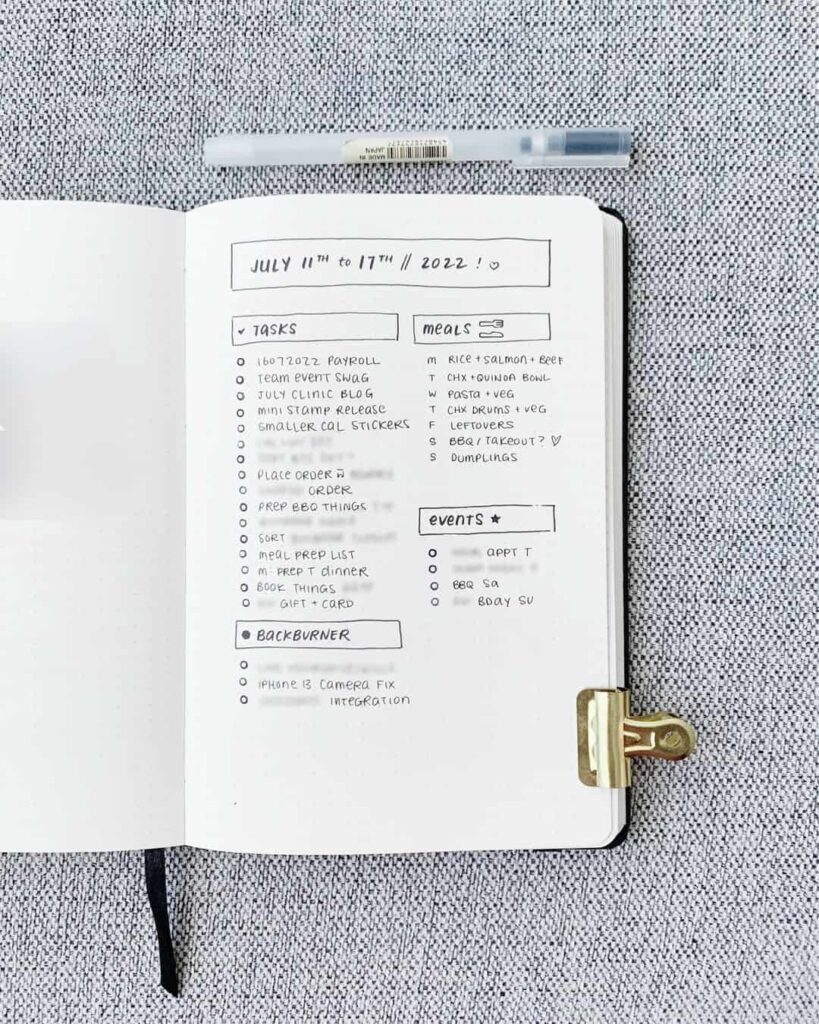 MADE IN JAPAN
JULY 11TH to 17TH // 2022 ! ♡
✓ TASKS
16072022 PAYROLL
TEAM EVENT SWAG
JULY CLINIC BLOG
MINI STAMP RELEASE
SMALLER CAL STICKERS
PLACE ORDER
ORDER
PREP BBQ THINGS
SORT
MEAL PREP LIST
M - PREP T DINNER
BOOK THINGS
GIFT + CARD
● BACKBURNER
IPHONE 13 CAMERA FIX
INTEGRATION
MEALS
M RICE + SALMON + BEEF
T CHX + QUINOA BOWL
W PASTA + VEG
T CHX DRUMS + VEG
F LEFTOVERS
S BBQ / TAKEOUT? ♡
S DUMPLINGS
EVENTS ★
APPT T
BBQ SA
BDAY SU